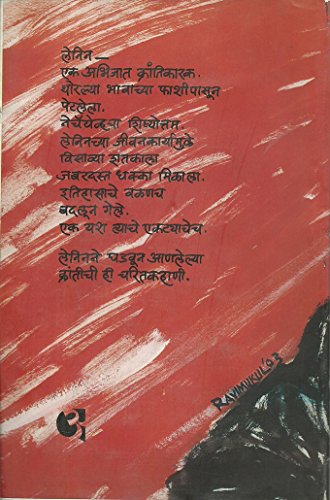 लेनिन —
एक अभिजात क्रांतिकारक.
थोरल्या भावाच्या फाशीपासून
पेटलेला.
शिष्योत्तम
लेनिनच्या जीवनकार्यामुळे
विसाव्या शतकाला
जबरदस्त धक्का मिळाला.
इतिहासाचे वळणच
बदलून गेले.
एक यश त्याचे एकट्याचेच.
लेनिनने घडवून आणलेल्या
क्रांतीची ही चरितकहाणी.
RAVIMUKUL'93